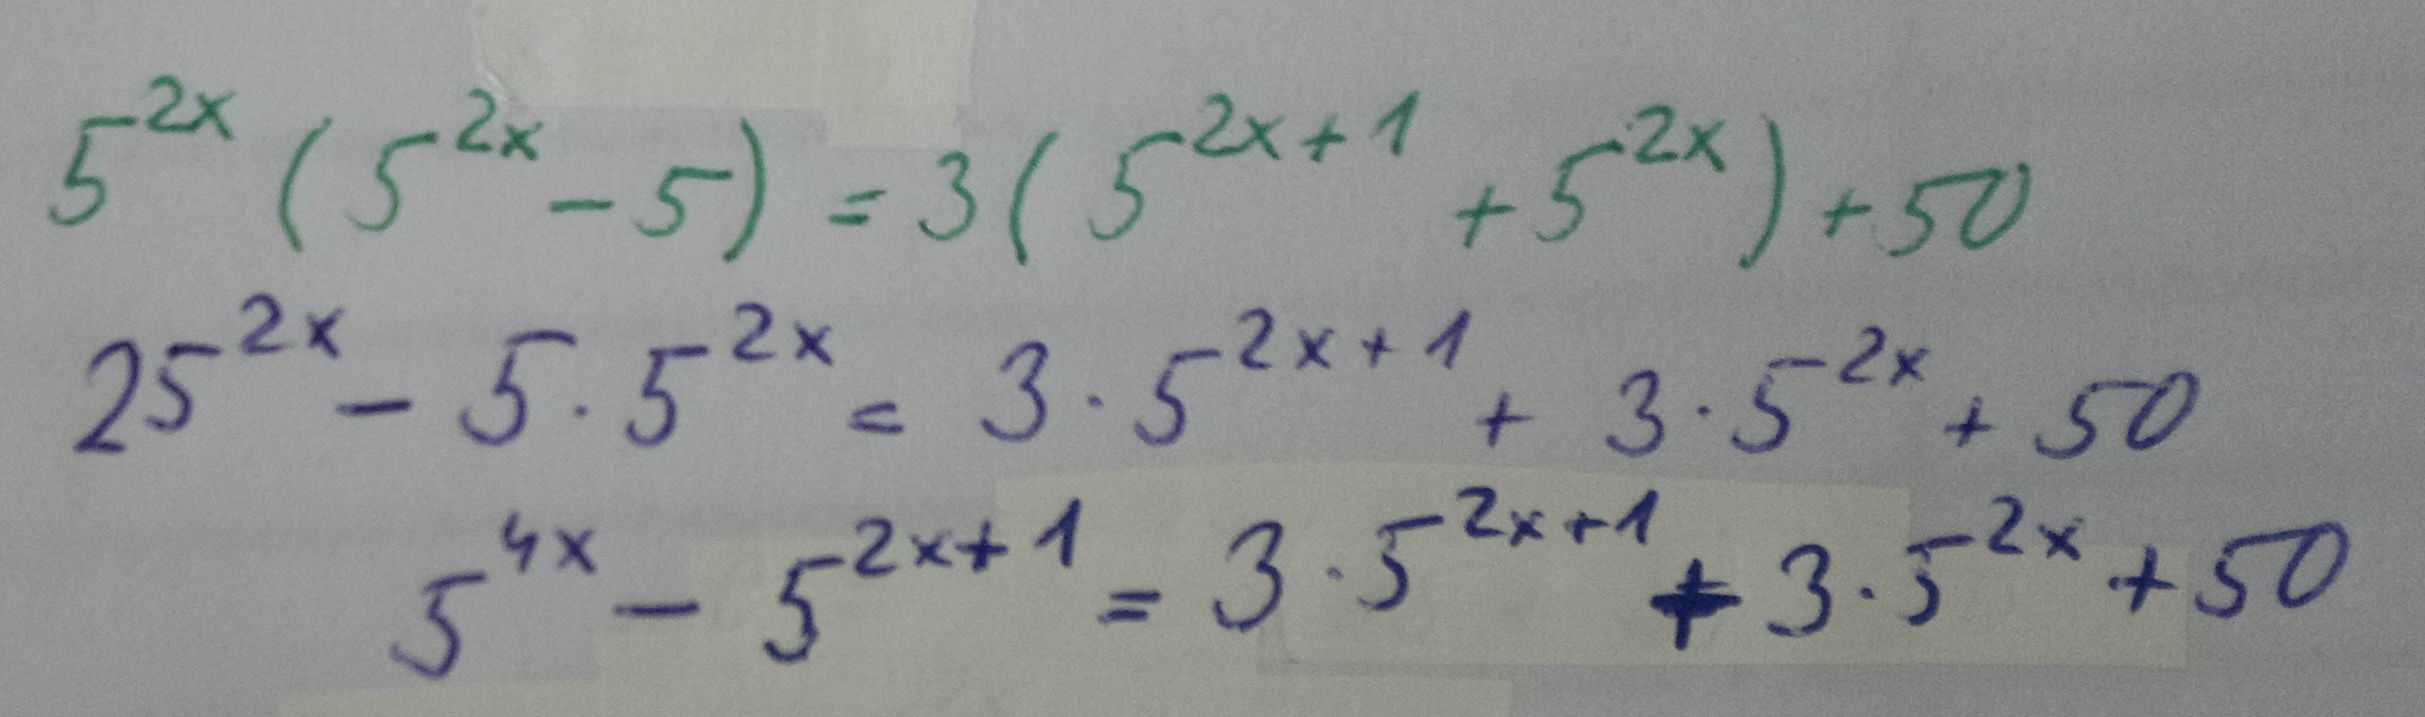 5^{2x} (5^{2x} - 5) = 3(5^{2x+1} + 5^{2x}) + 50
25^{2x} - 5 · 5^{2x} = 3 · 5^{2x+1} + 3 · 5^{2x} + 50
5^{4x} - 5^{2x+1} = 3 · 5^{2x+1} + 3 · 5^{2x} + 50